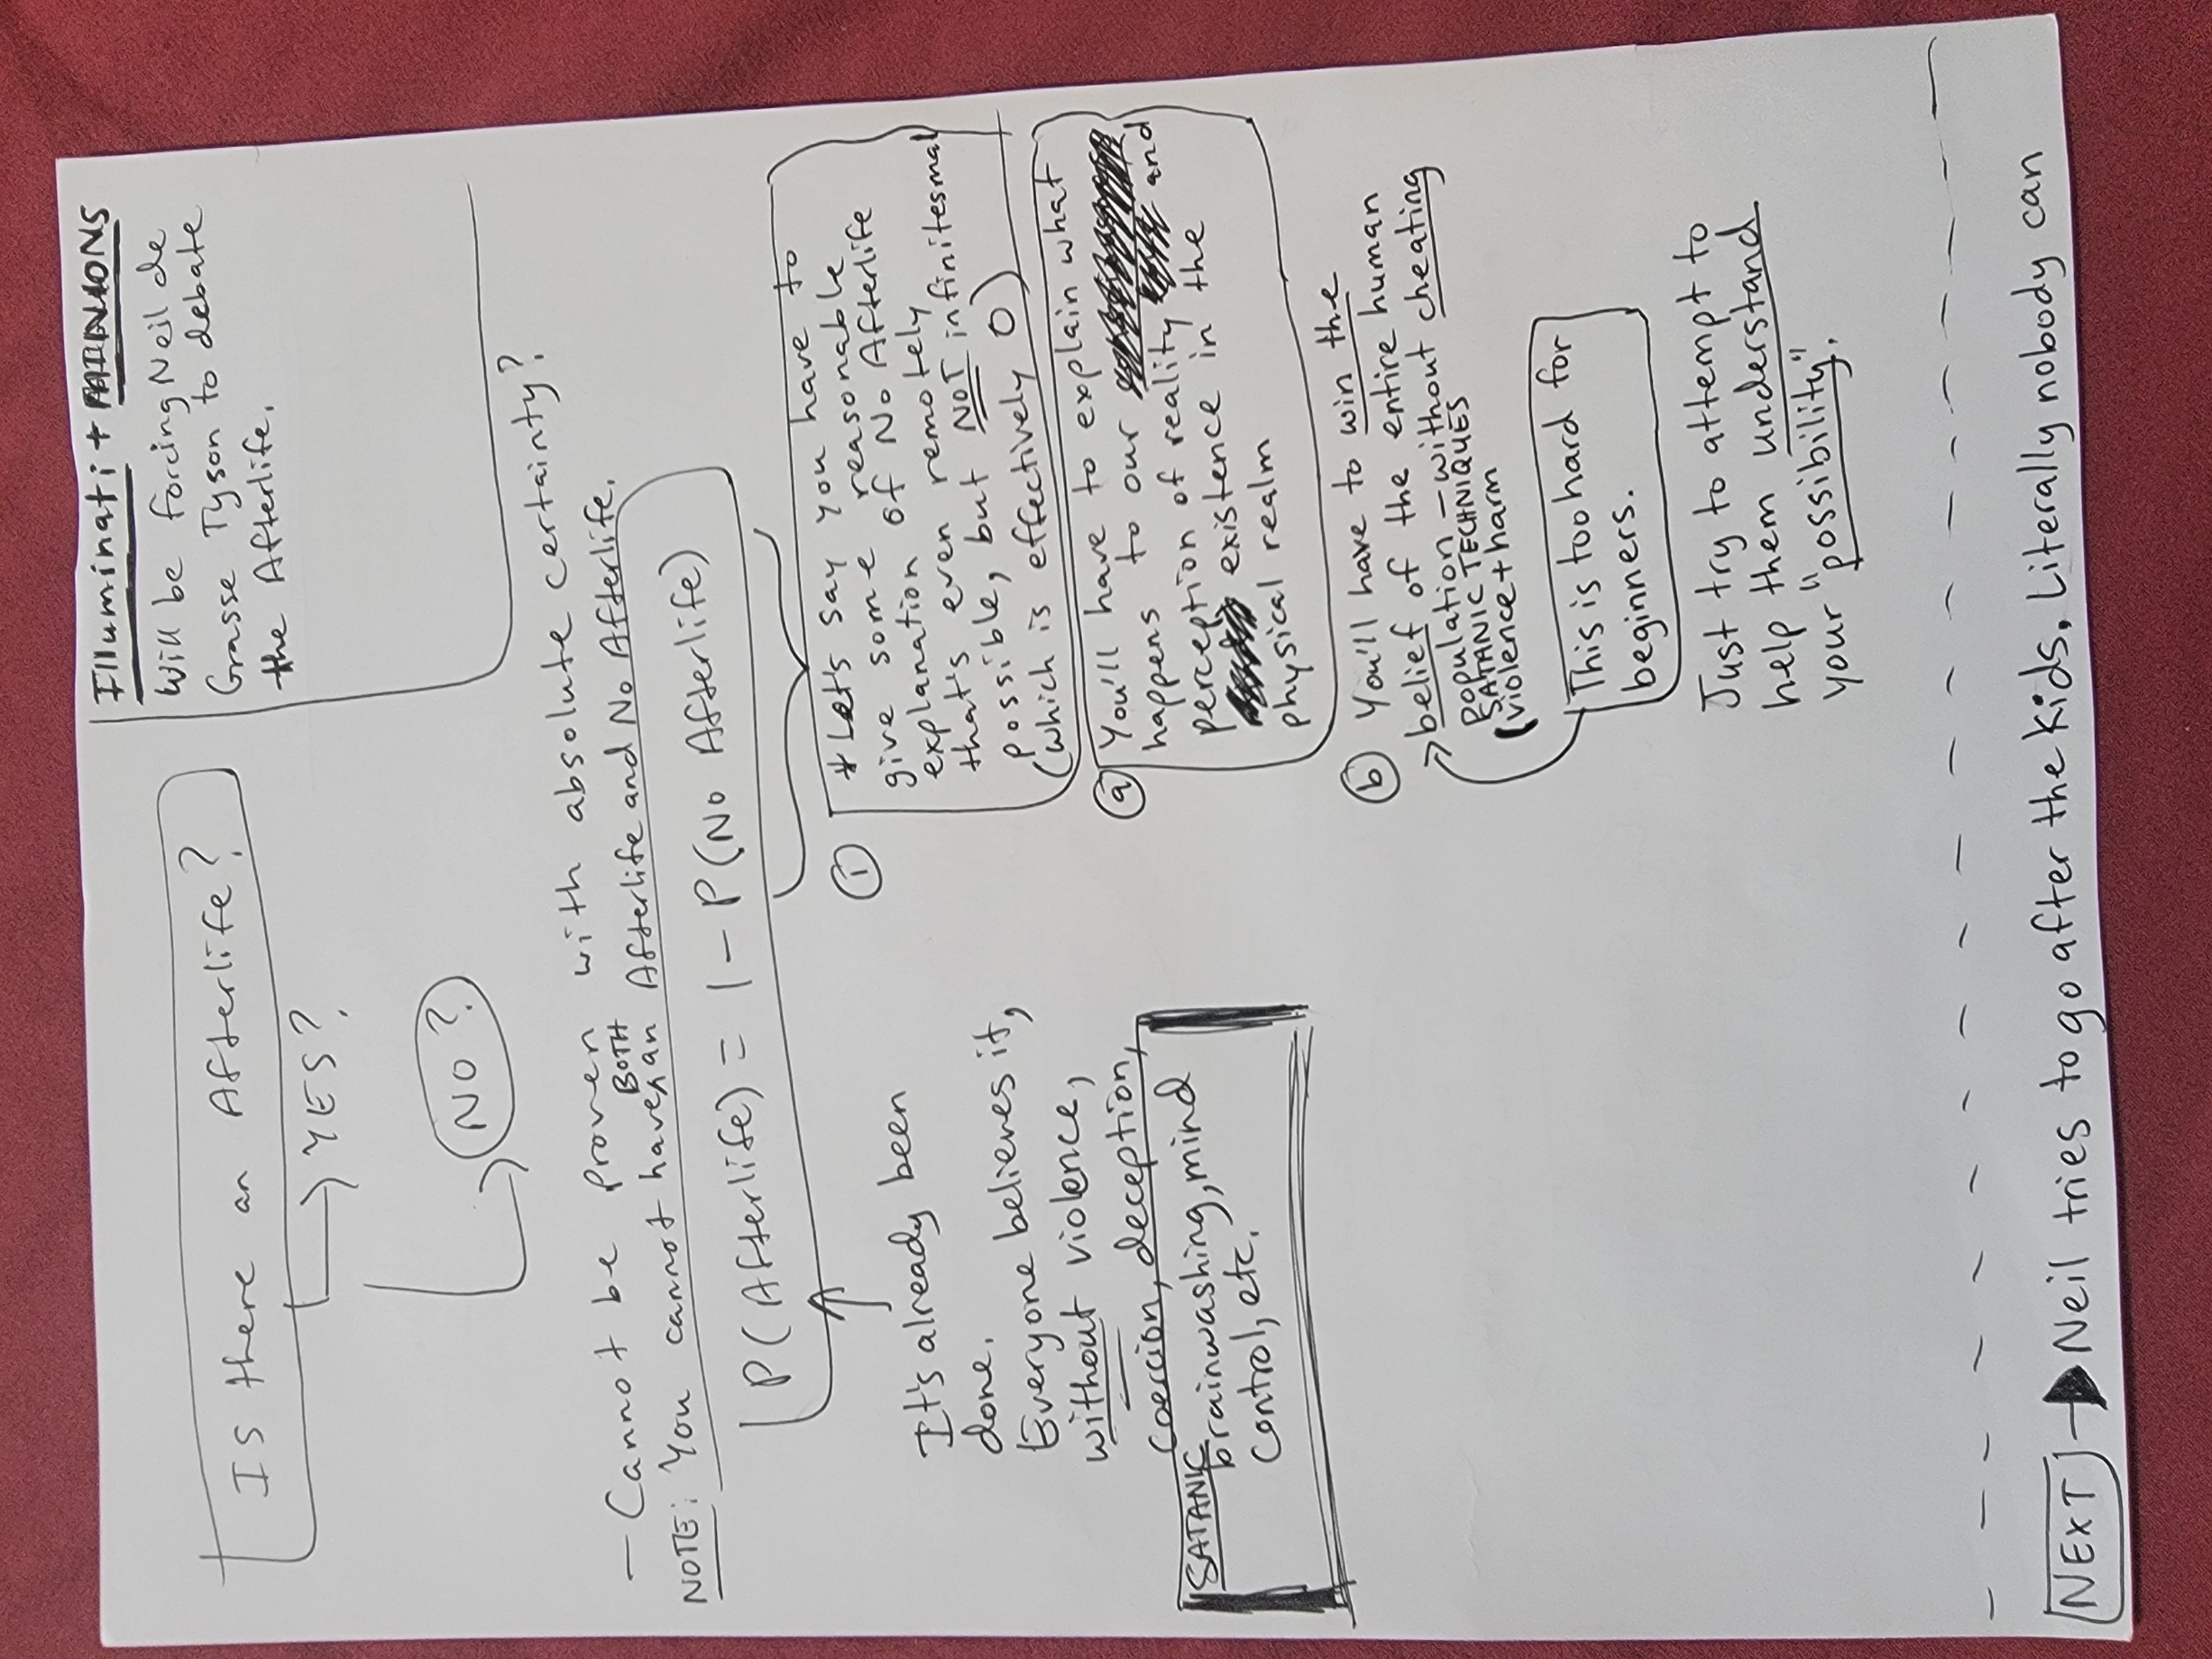 Illuminati + MINIONS
Will be forcing Neil de
Grasse Tyson to debate
the Afterlife.
Is there an Afterlife?
YES?
NO?
- Cannot be proven with absolute certainty?
NOTE: You cannot have BOTH an Afterlife and No Afterlife.
P(Afterlife) = 1 - P(No Afterlife)
It's already been
done.
Everyone believes it,
without violence,
coercion, deception,
SATANIC
brainwashing, mind
control, etc.
1
* Let's say you have to
give some reasonable
explanation of No Afterlife
that's even remotely
possible, but NOT infinitesmal
(which is effectively 0)
a You'll have to explain what
happens to our
perception of reality and
existence in the
physical realm
b You'll have to win the
belief of the entire human
population - without cheating
SATANIC TECHNIQUES
(violence + harm
This is too hard for
beginners.
Just try to attempt to
help them understand
your "possibility".
NEXT Neil tries to go after the kids. Literally nobody can